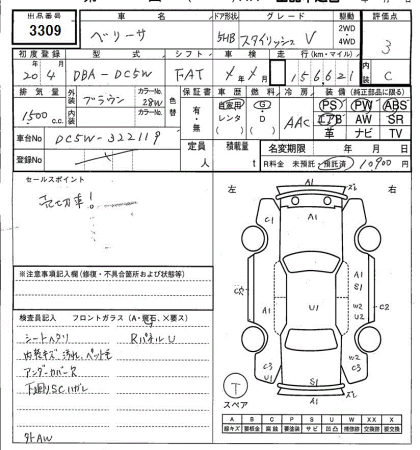 出品番号 車名 ドア形状 グレード 駆動 評価点
3309 ベリーサ 5HB スタイリッシュV 2WD・4WD 3
初度登録 型式 シフト 車検 走行(km・マイル) 内装
20 4 DBA-DC5W FAT 156621 C
排気量 外装 カラーNo. 色替 保証書 車歴 燃料 冷房 装備(純正部品に限る)
1500 c.c. ブラウン 28W 有・無 自家用 レンタ G・D AAC PS PW ABS
エアB AW SR
内装 カラーNo. 革 ナビ TV
車台No DC5W-322119 定員 人 積載量 t 名変期限 年 月 日
登録No R料金 未預託 預託済 10900円
セールスポイント
売切車!
左 右
※注意事項記入欄(修復・不具合箇所および状態等)
検査員記入欄 フロントガラス(A・飛石、×要ス)
シートヘタリ RパネルU
内装キズ、汚れ、ペット毛
アンダーカバーX
下廻りSCハガレ
外AW
A1
C1 A1 A1
A1 S1
C2 U1 C2
W2
C3 U1 W2 C3
S1
A1
T
スペア
A B C P S U W X XX
線キズ 要板金 腐蝕 要塗装 サビ 凹凸 補修跡 要交換 交換済